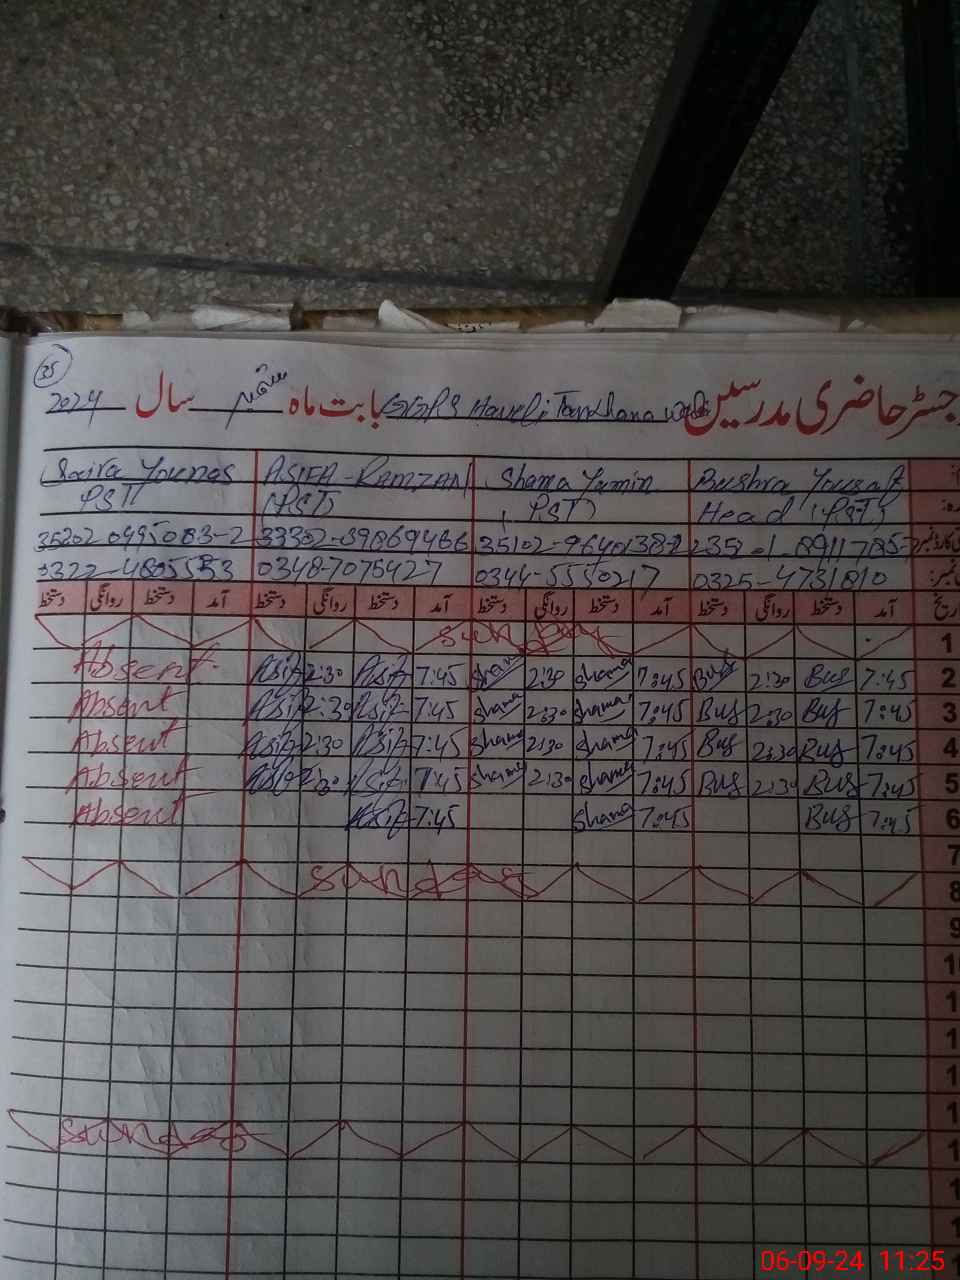 35
رجسٹر حاضری مدرسین GGPS Haveli بابت ماہ ستمبر سال 2024
Saira Younas ASIFA-RAMZAN Shama Yamin Bushra Yousaf
PST (PST) (PST) Head (PST)
33302-39869466
0348-7075427 0344-5550217 0325-4731810
تاریخ آمد دستخط روانگی دستخط آمد دستخط روانگی دستخط آمد دستخط روانگی دستخط آمد دستخط روانگی دستخط
1 Sunday
Absent Asifa 2:30 Asifa 7:45 Shama 2:30 Shama 7:45 Bus 2:30 Bus 7:45 2
Absent Asifa 2:30 Asifa 7:45 Shama 2:30 Shama 7:45 Bus 2:30 Bus 7:45 3
Absent Asifa 2:30 Asifa 7:45 Shama 2:30 Shama 7:45 Bus 2:30 Bus 7:45 4
Absent Asifa 2:30 Asifa 7:45 Shama 2:30 Shama 7:45 Bus 2:30 Bus 7:45 5
Absent Asifa 7:45 Shama 7:45 Bus 7:45 6
7
Sunday 8
9
Sunday
06-09-24 11:25